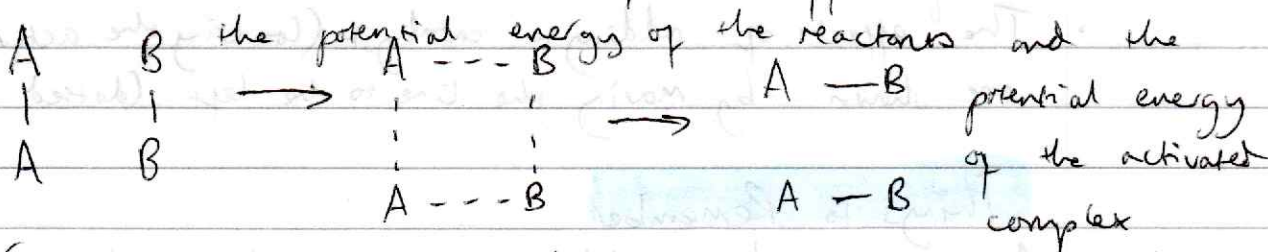 the potential energy of the reactants and the
A B A --- B A — B potential energy
of the activated
A B A --- B A — B complex